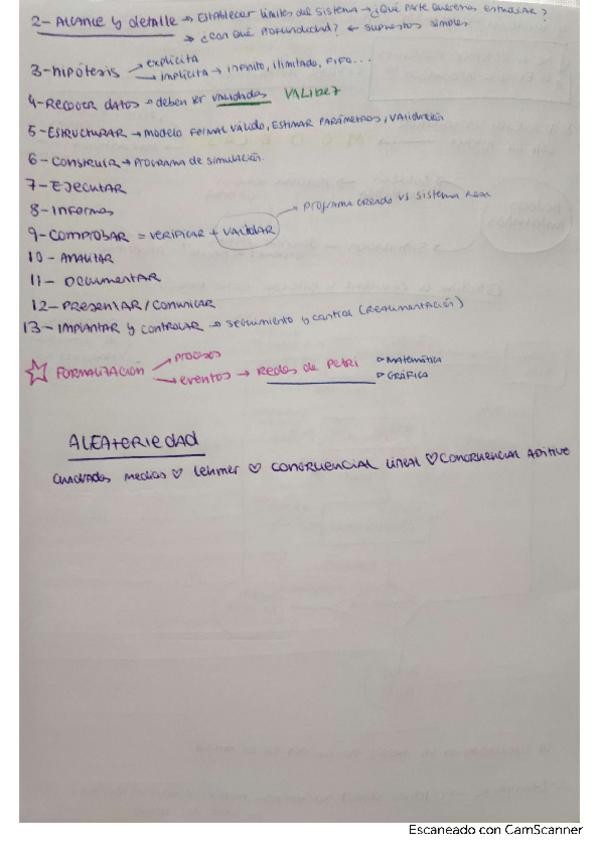 2- Alcance y detalle → Establecer límites del sistema → ¿Qué parte queremos estudiar?
→ ¿con qué profundidad? ← supuestos simples
3- hipótesis → explícita
→ implícita → infinito, ilimitado, FIFO...
4- Recoger datos → deben ser validados VALIDEZ
5- ESTRUCTURAR → modelo formal válido, ESTIMAR PARÁMETROS, VALIDACIÓN
6- CONSTRUIR → PROGRAMA DE SIMULACIÓN.
7- EJECUTAR
8- Informes
9- COMPROBAR = VERIFICAR + VALIDAR → programa creado vs sistema real
10- ANALIZAR
11- DOCUMENTAR
12- PRESENTAR / COMUNICAR
13- IMPLANTAR y CONTROLAR → seguimiento y control (REALIMENTACIÓN)
☆ FORMALIZACIÓN → procesos
→ eventos → Redes de Petri ▷ MATEMÁTICA
▷ GRÁFICA
ALEATERIEDAD
Cuadrados medios ♡ Lehmer ♡ CONGRUENCIAL LINEAL ♡ CONGRUENCIAL ADITIVO
Escaneado con CamScanner